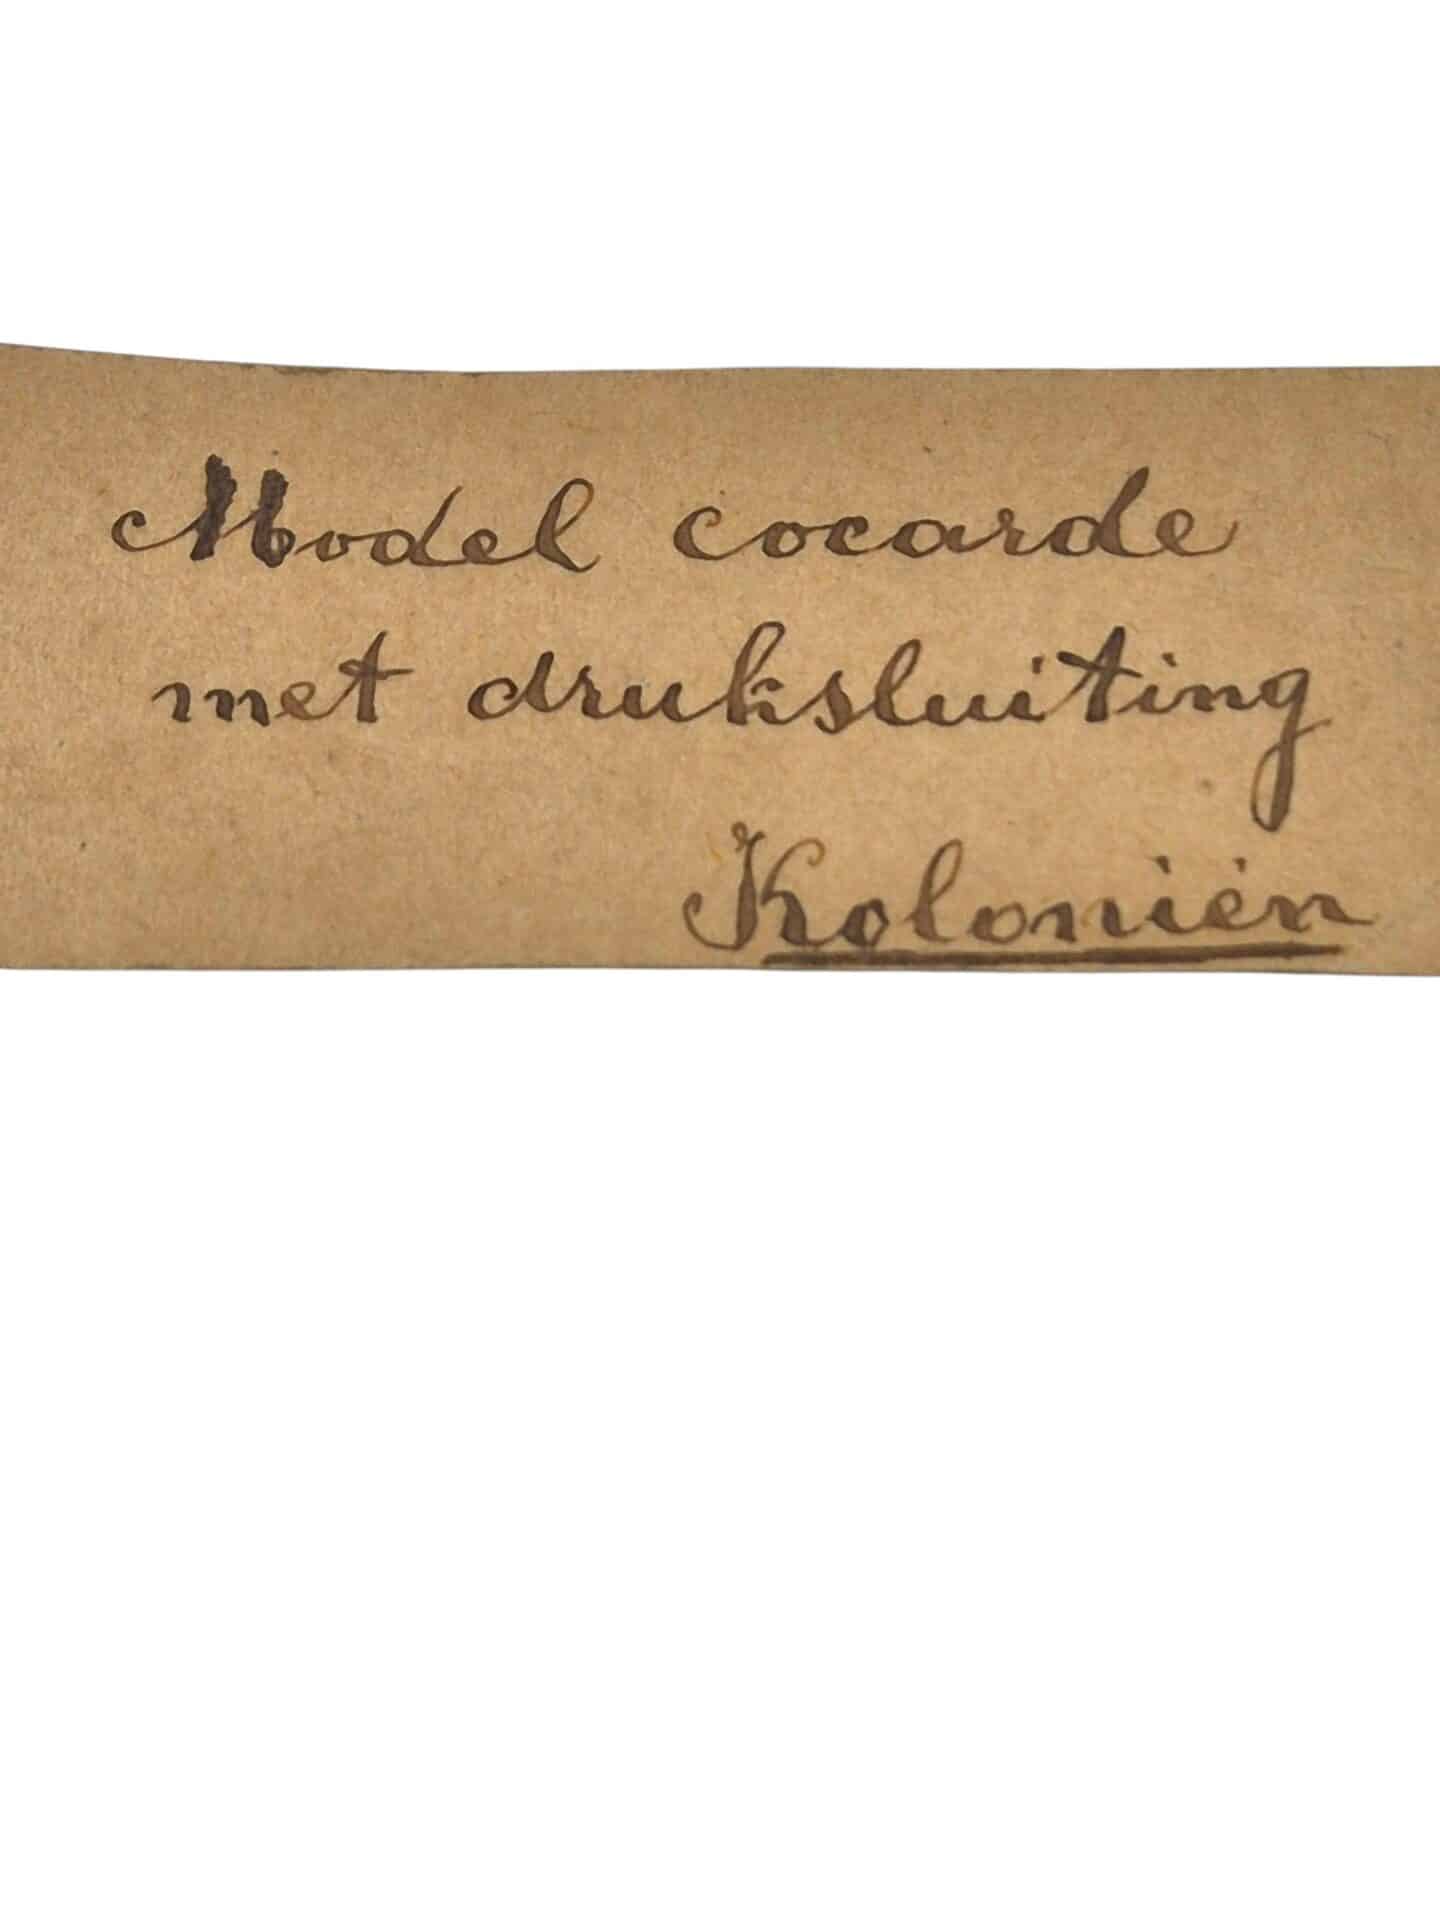 Model cocarde
met druksluiting
Koloniën